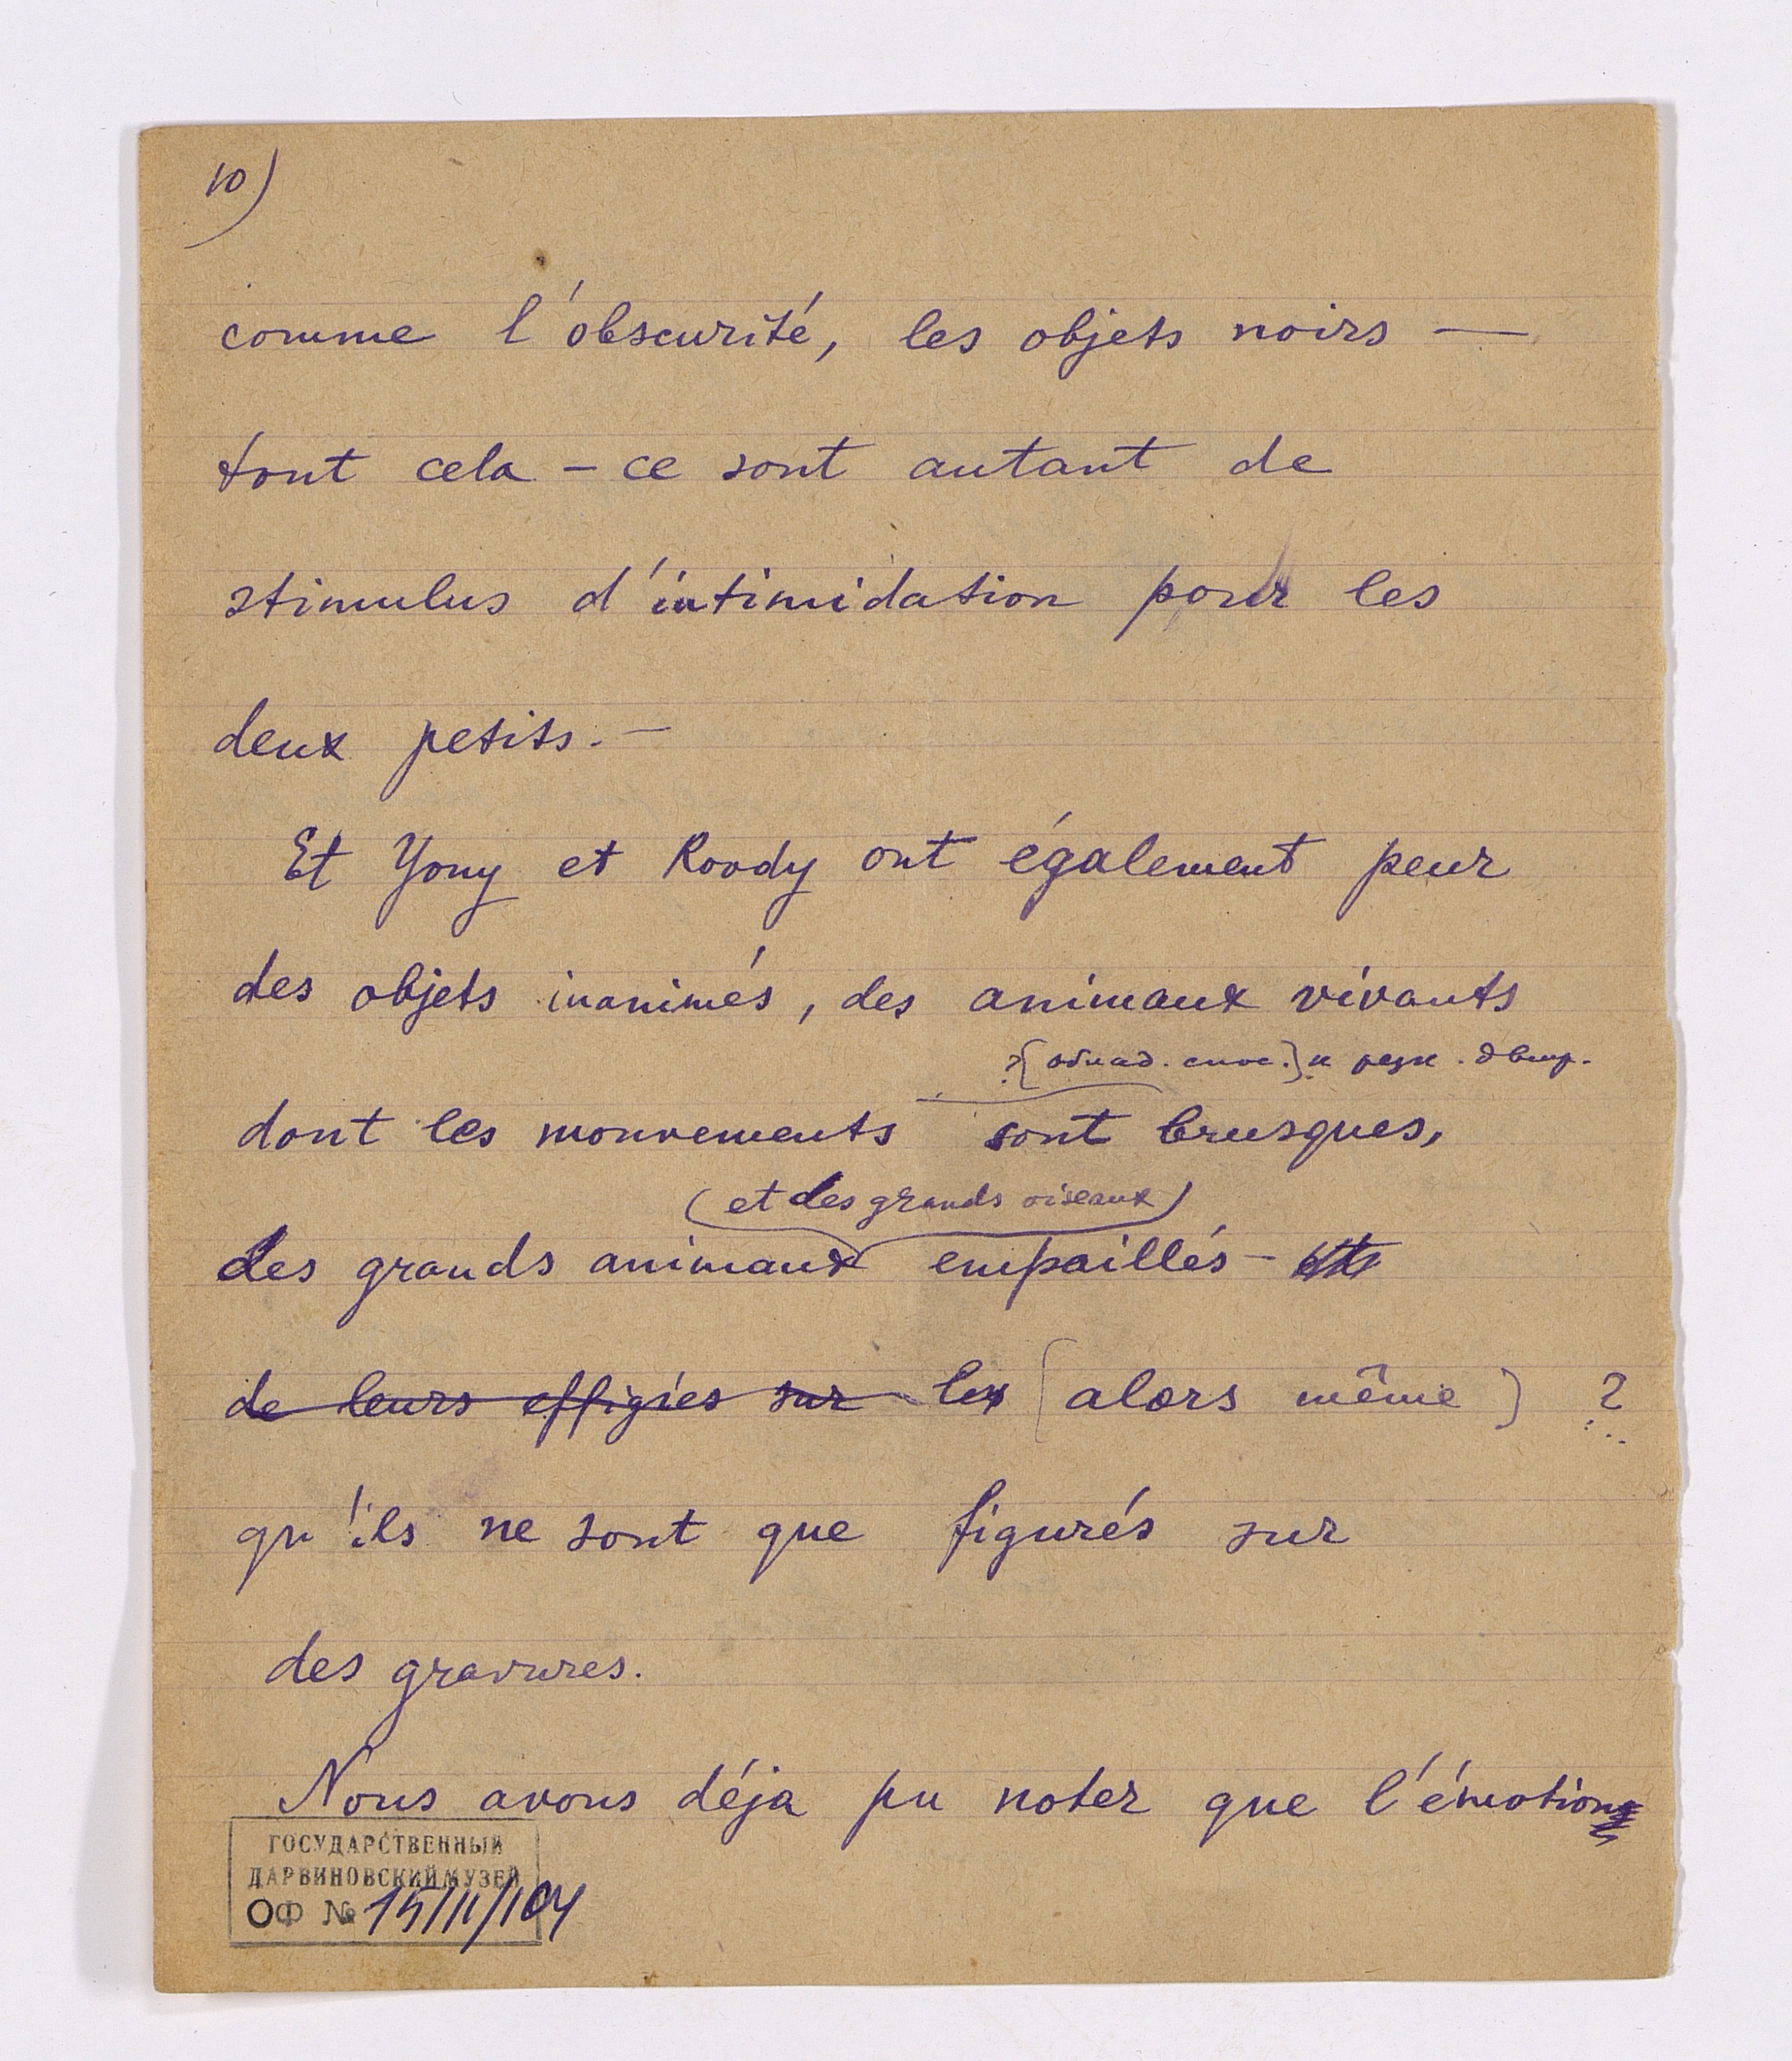 10)
comme l'obscurité, les objets noirs —
tout cela – ce sont autant de
stimulus d'intimidation pour les
deux petits. —
Et Yony et Roody ont également peur
des objets inanimés, des animaux vivants
?[обнад. спос.] к резк. движ.
dont les mouvements sont brusques,
(et des grands oiseaux)
des grands animaux empaillés –
de leurs effigies sur les [alors même] ?
qu'ils ne sont que figurés sur
des gravures.
Nous avons déja pu noter que l'émotion
ГОСУДАРСТВЕННЫЙ
ДАРВИНОВСКИЙ МУЗЕЙ
ОФ № 15111/104